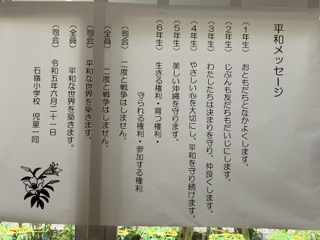 平和メッセージ
(1年生) おともだちとなかよくします。
(2年生) じぶんも友だちもだいじにします。
(3年生) わたしたちは決まりを守り、仲良くします。
(4年生) やさしい心を大切にし、平和を守り続けます。
(5年生) 美しい沖縄を守ります。
(6年生) 生きる権利・育つ権利・
守られる権利・参加する権利
(司会) 二度と戦争はしません。
(全員) 二度と戦争はしません。
(司会) 平和な世界を築きます。
(全員) 平和な世界を築きます。
(司会) 令和五年六月二十一日
石嶺小学校 児童一同